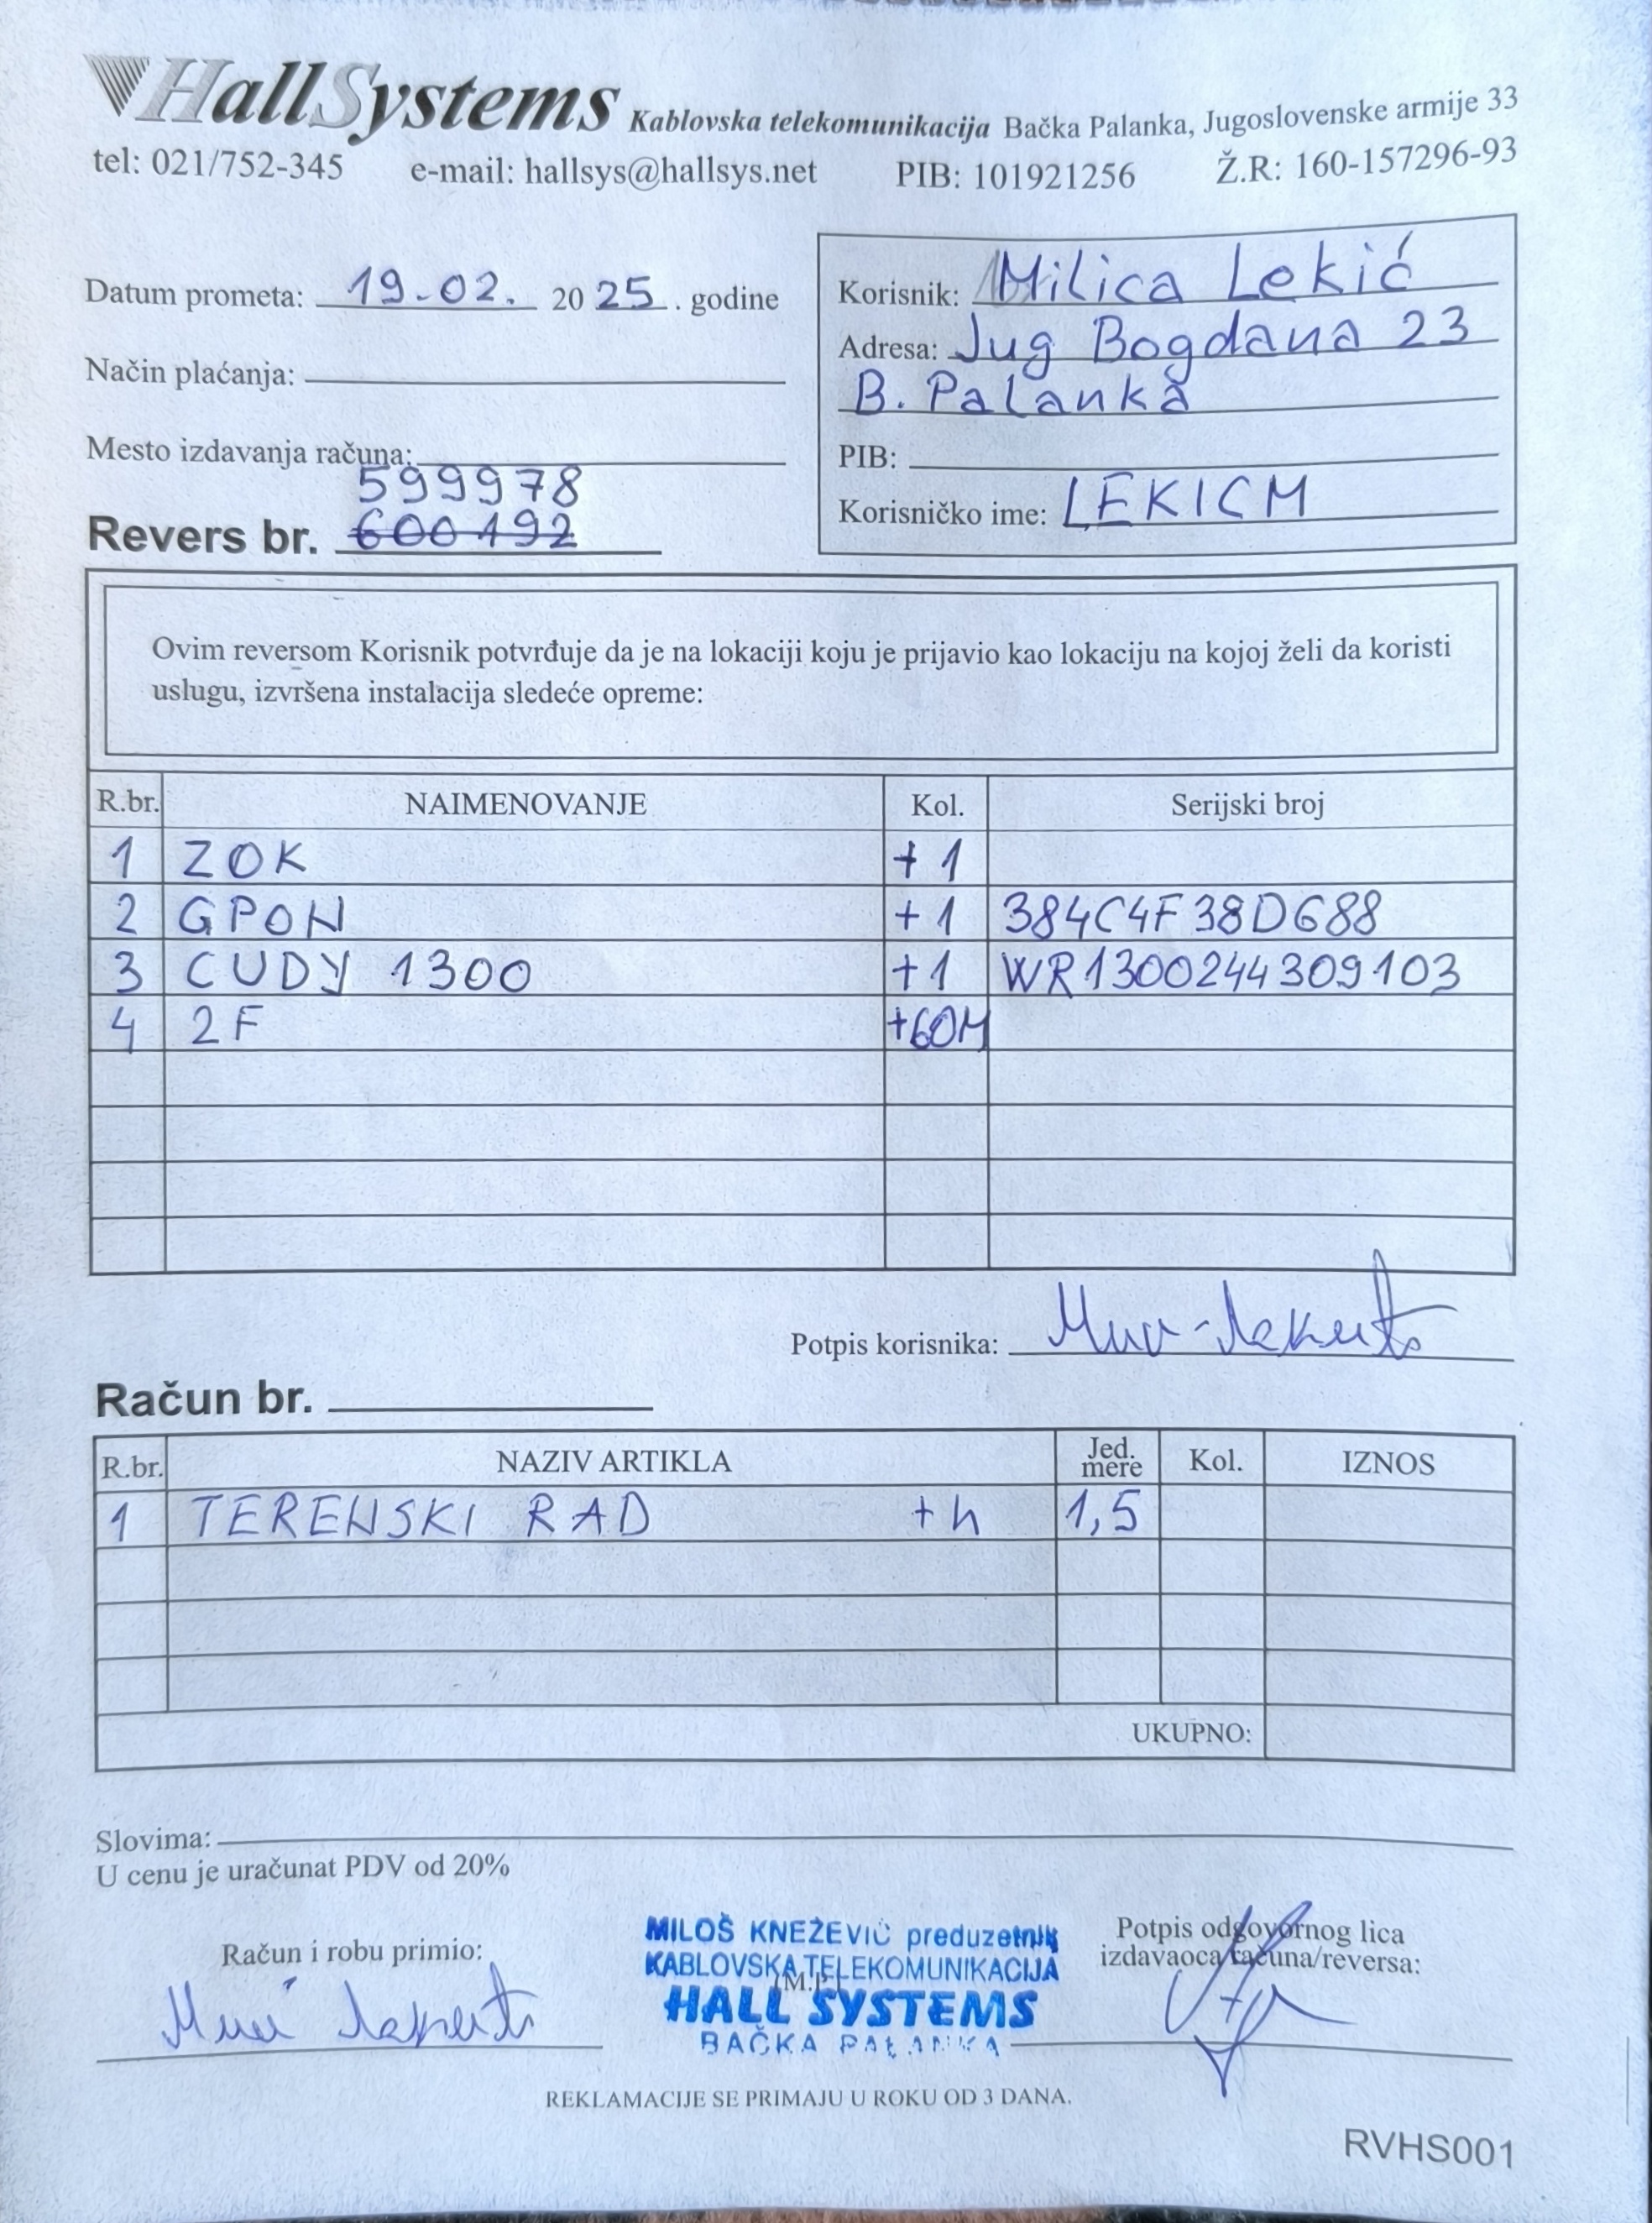 HallSystems Kablovska telekomunikacija Bačka Palanka, Jugoslovenske armije 33
tel: 021/752-345 e-mail: hallsys@hallsys.net PIB: 101921256 Ž.R: 160-157296-93
Datum prometa: 19.02. 2025. godine
Način plaćanja:
Mesto izdavanja računa:
599978
Revers br. 600192
Korisnik: Milica Lekić
Adresa: Jug Bogdana 23
B. Palanka
PIB:
Korisničko ime: LEKICM
Ovim reversom Korisnik potvrđuje da je na lokaciji koju je prijavio kao lokaciju na kojoj želi da koristi
uslugu, izvršena instalacija sledeće opreme:
R.br. NAIMENOVANJE Kol. Serijski broj
1 ZOK +1
2 GPON +1 384C4F38D688
3 CUDY 1300 +1 WR1300244309103
4 2F +60M
Potpis korisnika:
Račun br.
R.br. NAZIV ARTIKLA Jed. mere Kol. IZNOS
1 TERENSKI RAD +h 1,5
UKUPNO:
Slovima:
U cenu je uračunat PDV od 20%
Račun i robu primio:
MILOŠ KNEŽEVIĆ preduzetnik
KABLOVSKA TELEKOMUNIKACIJA
(M.P.)
HALL SYSTEMS
BAČKA PALANKA
Potpis odgovornog lica
izdavaoca računa/reversa:
REKLAMACIJE SE PRIMAJU U ROKU OD 3 DANA.
RVHS001